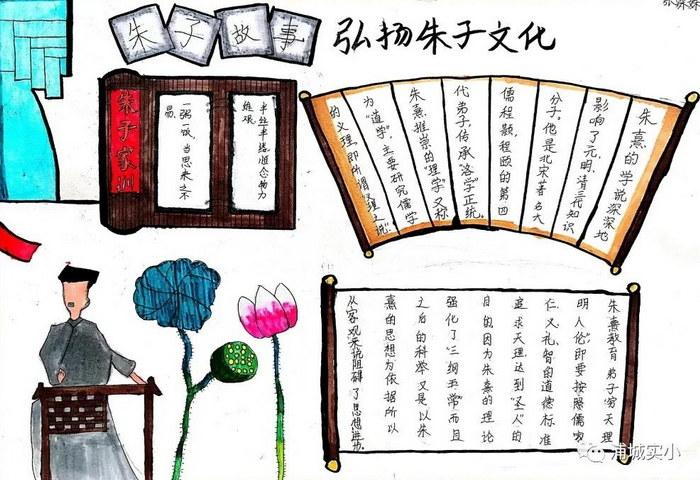 朱子故事
弘扬朱子文化
朱子家训
一粥一饭,当思来之不
易.
半丝半缕,恒念物力
维艰
朱熹的学说深深地
影响了元、明、清三代知识
分子。他是北宋著名大
儒程颢、程颐的第四
代弟子,传承"洛学"正统。
朱熹推崇的"理学"又称
为"道学",主要研究儒学
的义理,即所谓理之说.
朱熹教育弟子"穷天理
明人伦"即要按照儒家
仁、义、礼、智的道德标准
追求天理达到"圣人"的
目的因为朱熹的理论
强化了"三纲五常"而且
之后的科举又是以朱
熹的思想为依据所以
从客观来说阻碍了思想进步.
浦城实小